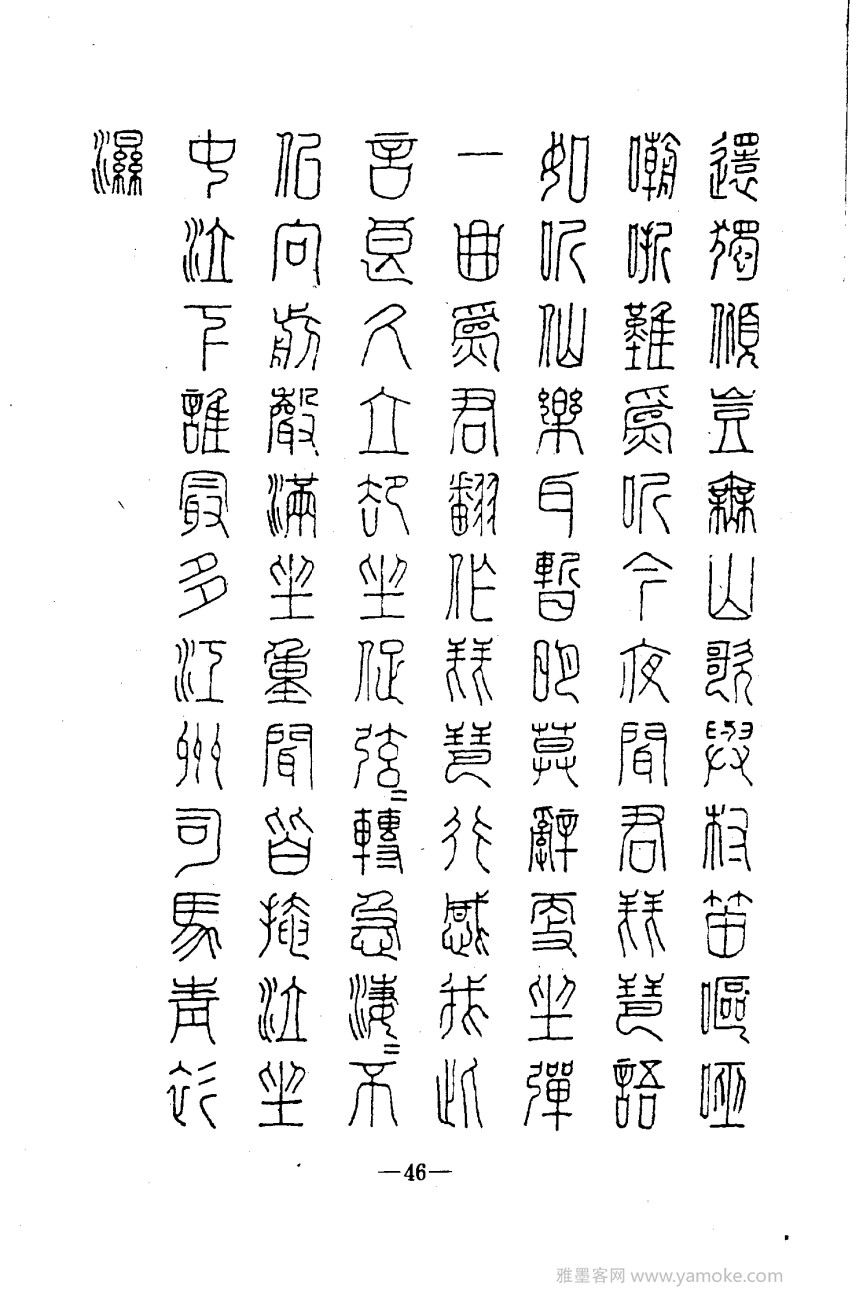 還獨傾豈無山歌與村笛嘔啞
嘲哳難爲听今夜聞君琵琶語
如听仙樂耳暫明莫辭更坐彈
一曲爲君翻作琵琶行感我此
言良久立却坐促弦〻轉急淒〻不
似向前聲滿坐重聞皆掩泣坐
中泣下誰最多江州司馬青衫
濕
—46—
雅墨客网 www.yamoke.com